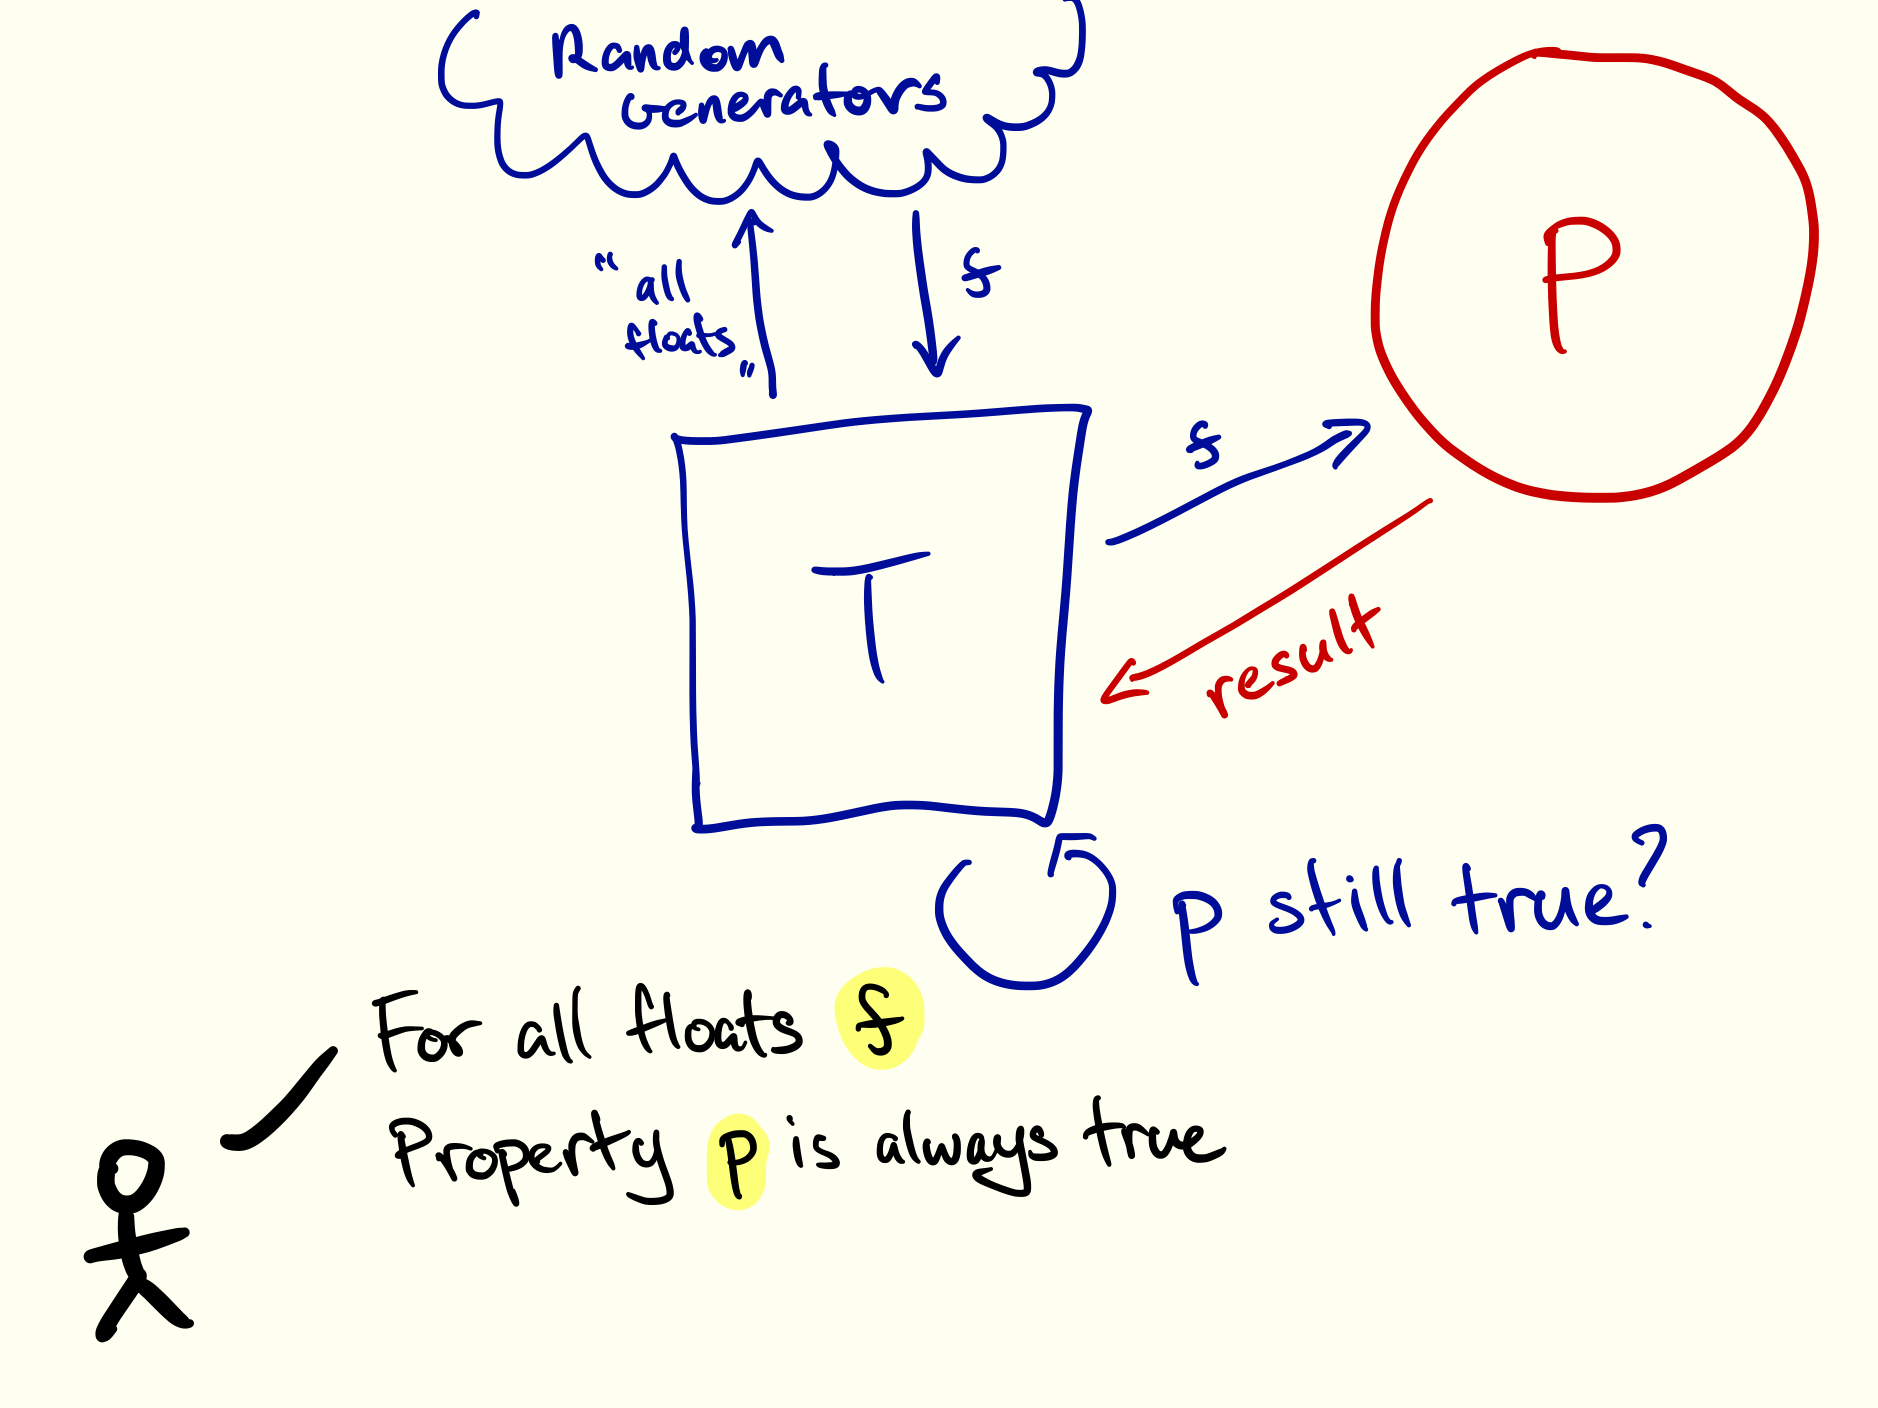 Random
Generators
"all
floats"
f
P
f
T
result
p still true?
For all floats f
Property p is always true